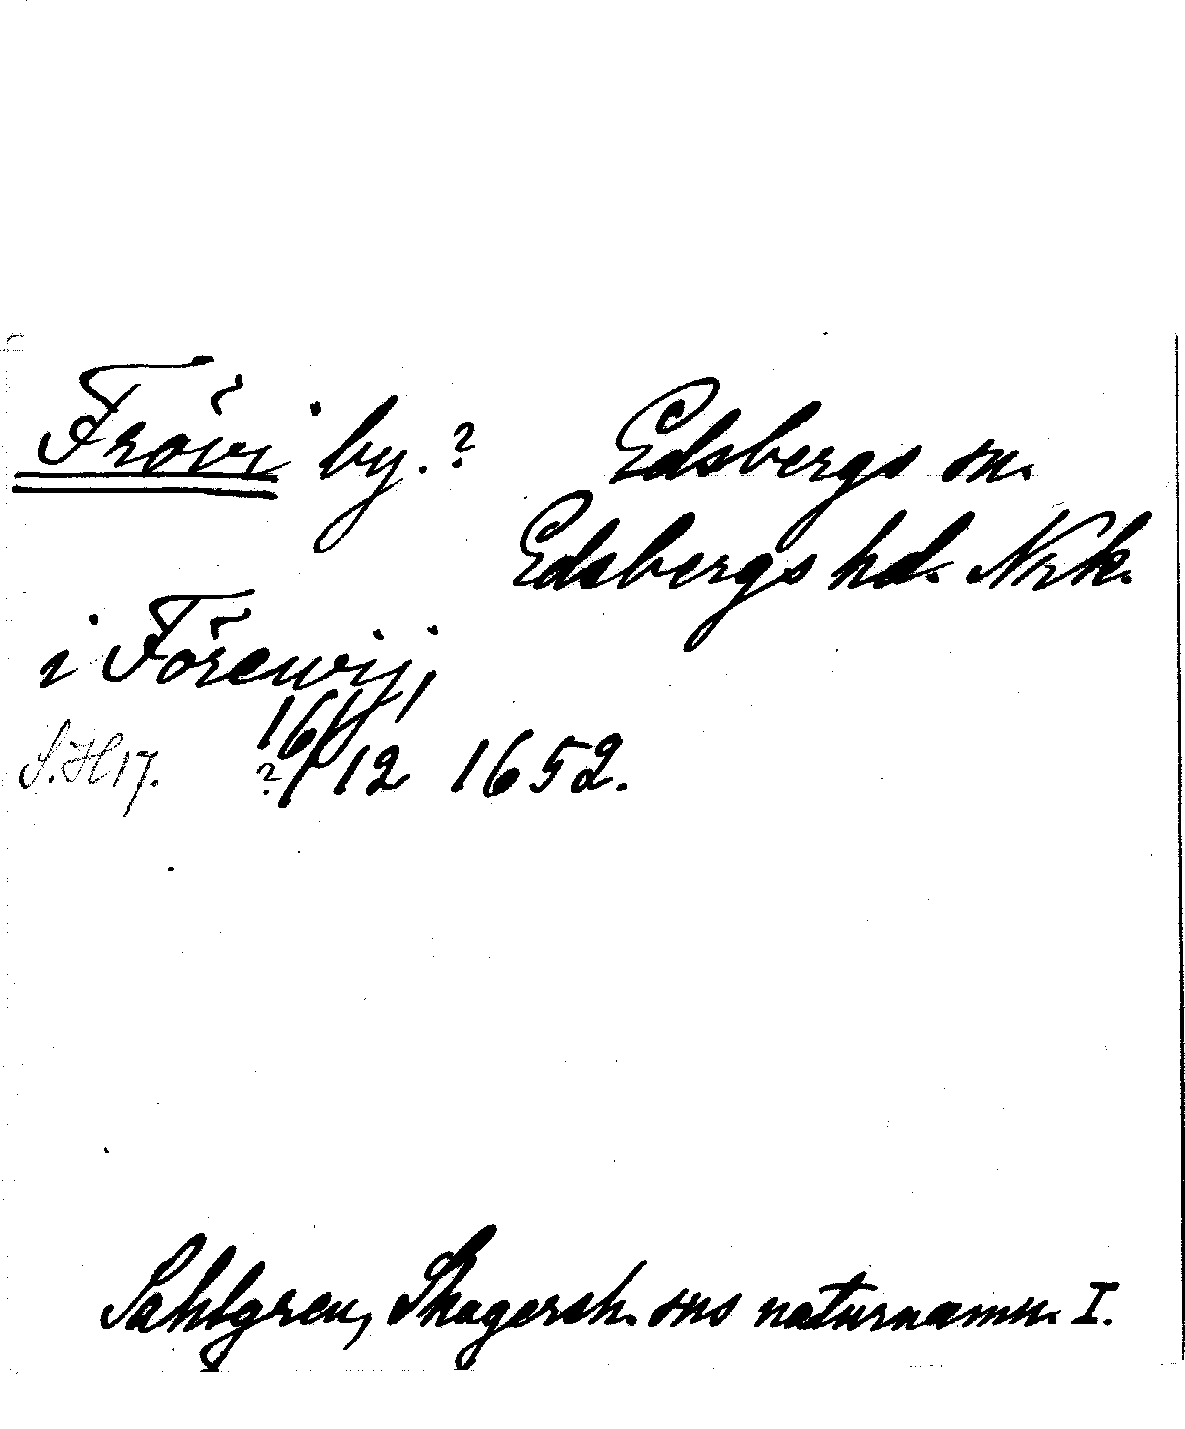 Frövi by.? Edsbergs sn.
Edsbergs hd. Nrk.
i Förewij,
S. H 17. 16/12 1652.
?
Sahlgren, Skagersh. sns naturnamn. I.